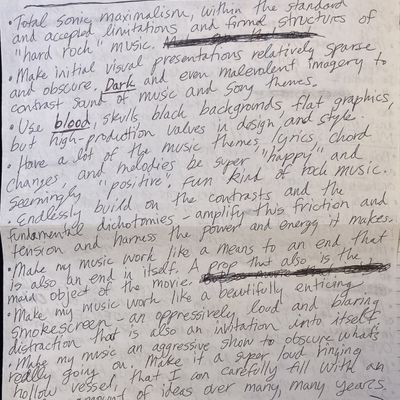 • Total sonic maximalism, within the standard
and accepted limitations and formal structures of
"hard rock" music.
• Make initial visual presentations relatively sparse
and obscure. Dark and even malevolent imagery to
contrast sound of music and song themes.
• Use blood, skulls, black backgrounds, flat graphics,
but high-production values in design and style.
• Have a lot of the music themes, lyrics, chord
changes, and melodies be super "happy" and
seemingly "positive". Fun kind of rock music.
• Endlessly build on the contrasts and the
fundamental dichotomies - amplify this friction and
tension and harness the power and energy it makes.
• Make my music work like a means to an end that
is also an end in itself. A prop that also is the
main object of the movie.
• Make my music work like a beautifully enticing
smokescreen - an oppressively loud and blaring
distraction that is also an invitation unto itself.
• Make my music an aggressive show to obscure what's
really going on. Make it a super loud ringing
hollow vessel, that I can carefully fill with an
amount of ideas over many, many years.